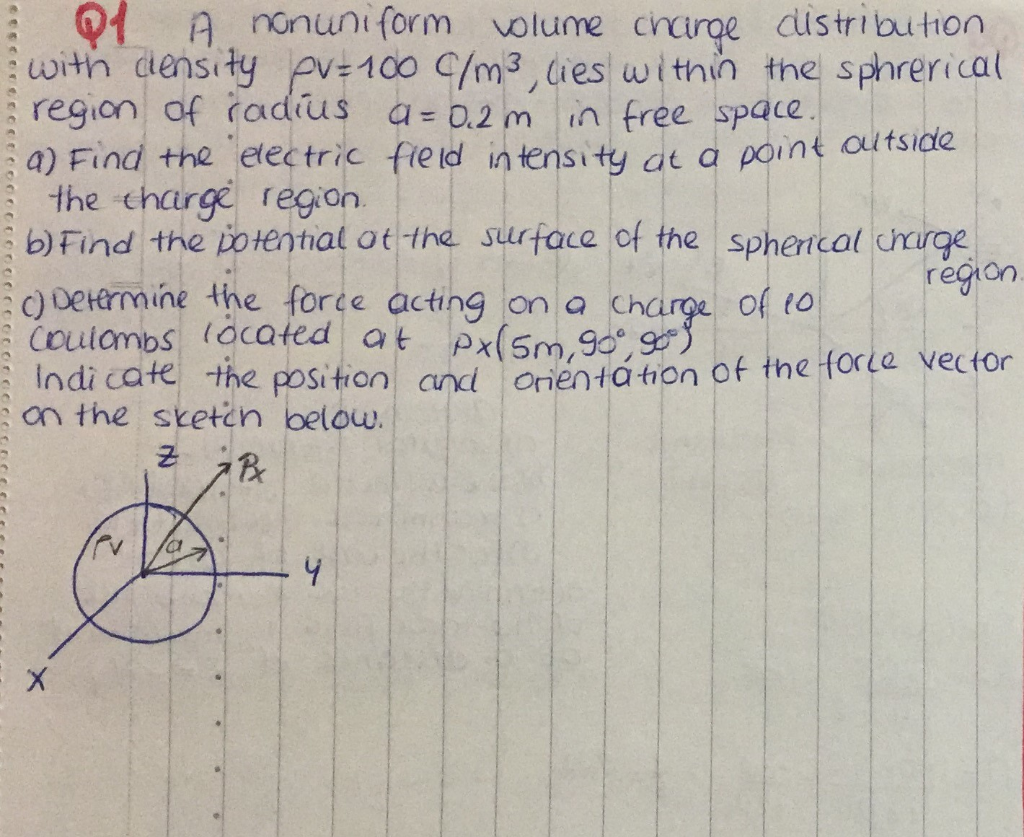 Q1 A nonuniform volume charge distribution
with density ρv=100 C/m³, lies within the sphrerical
region of radius a = 0.2 m in free space.
a) Find the electric field intensity at a point outside
the charge region.
b) Find the potential at the surface of the spherical charge
region.
c) Determine the force acting on a charge of 10
Coulombs located at Px(5m, 90°, 90°)
Indicate the position and orientation of the force vector
on the sketch below.
z
Px
ρv
a
y
x